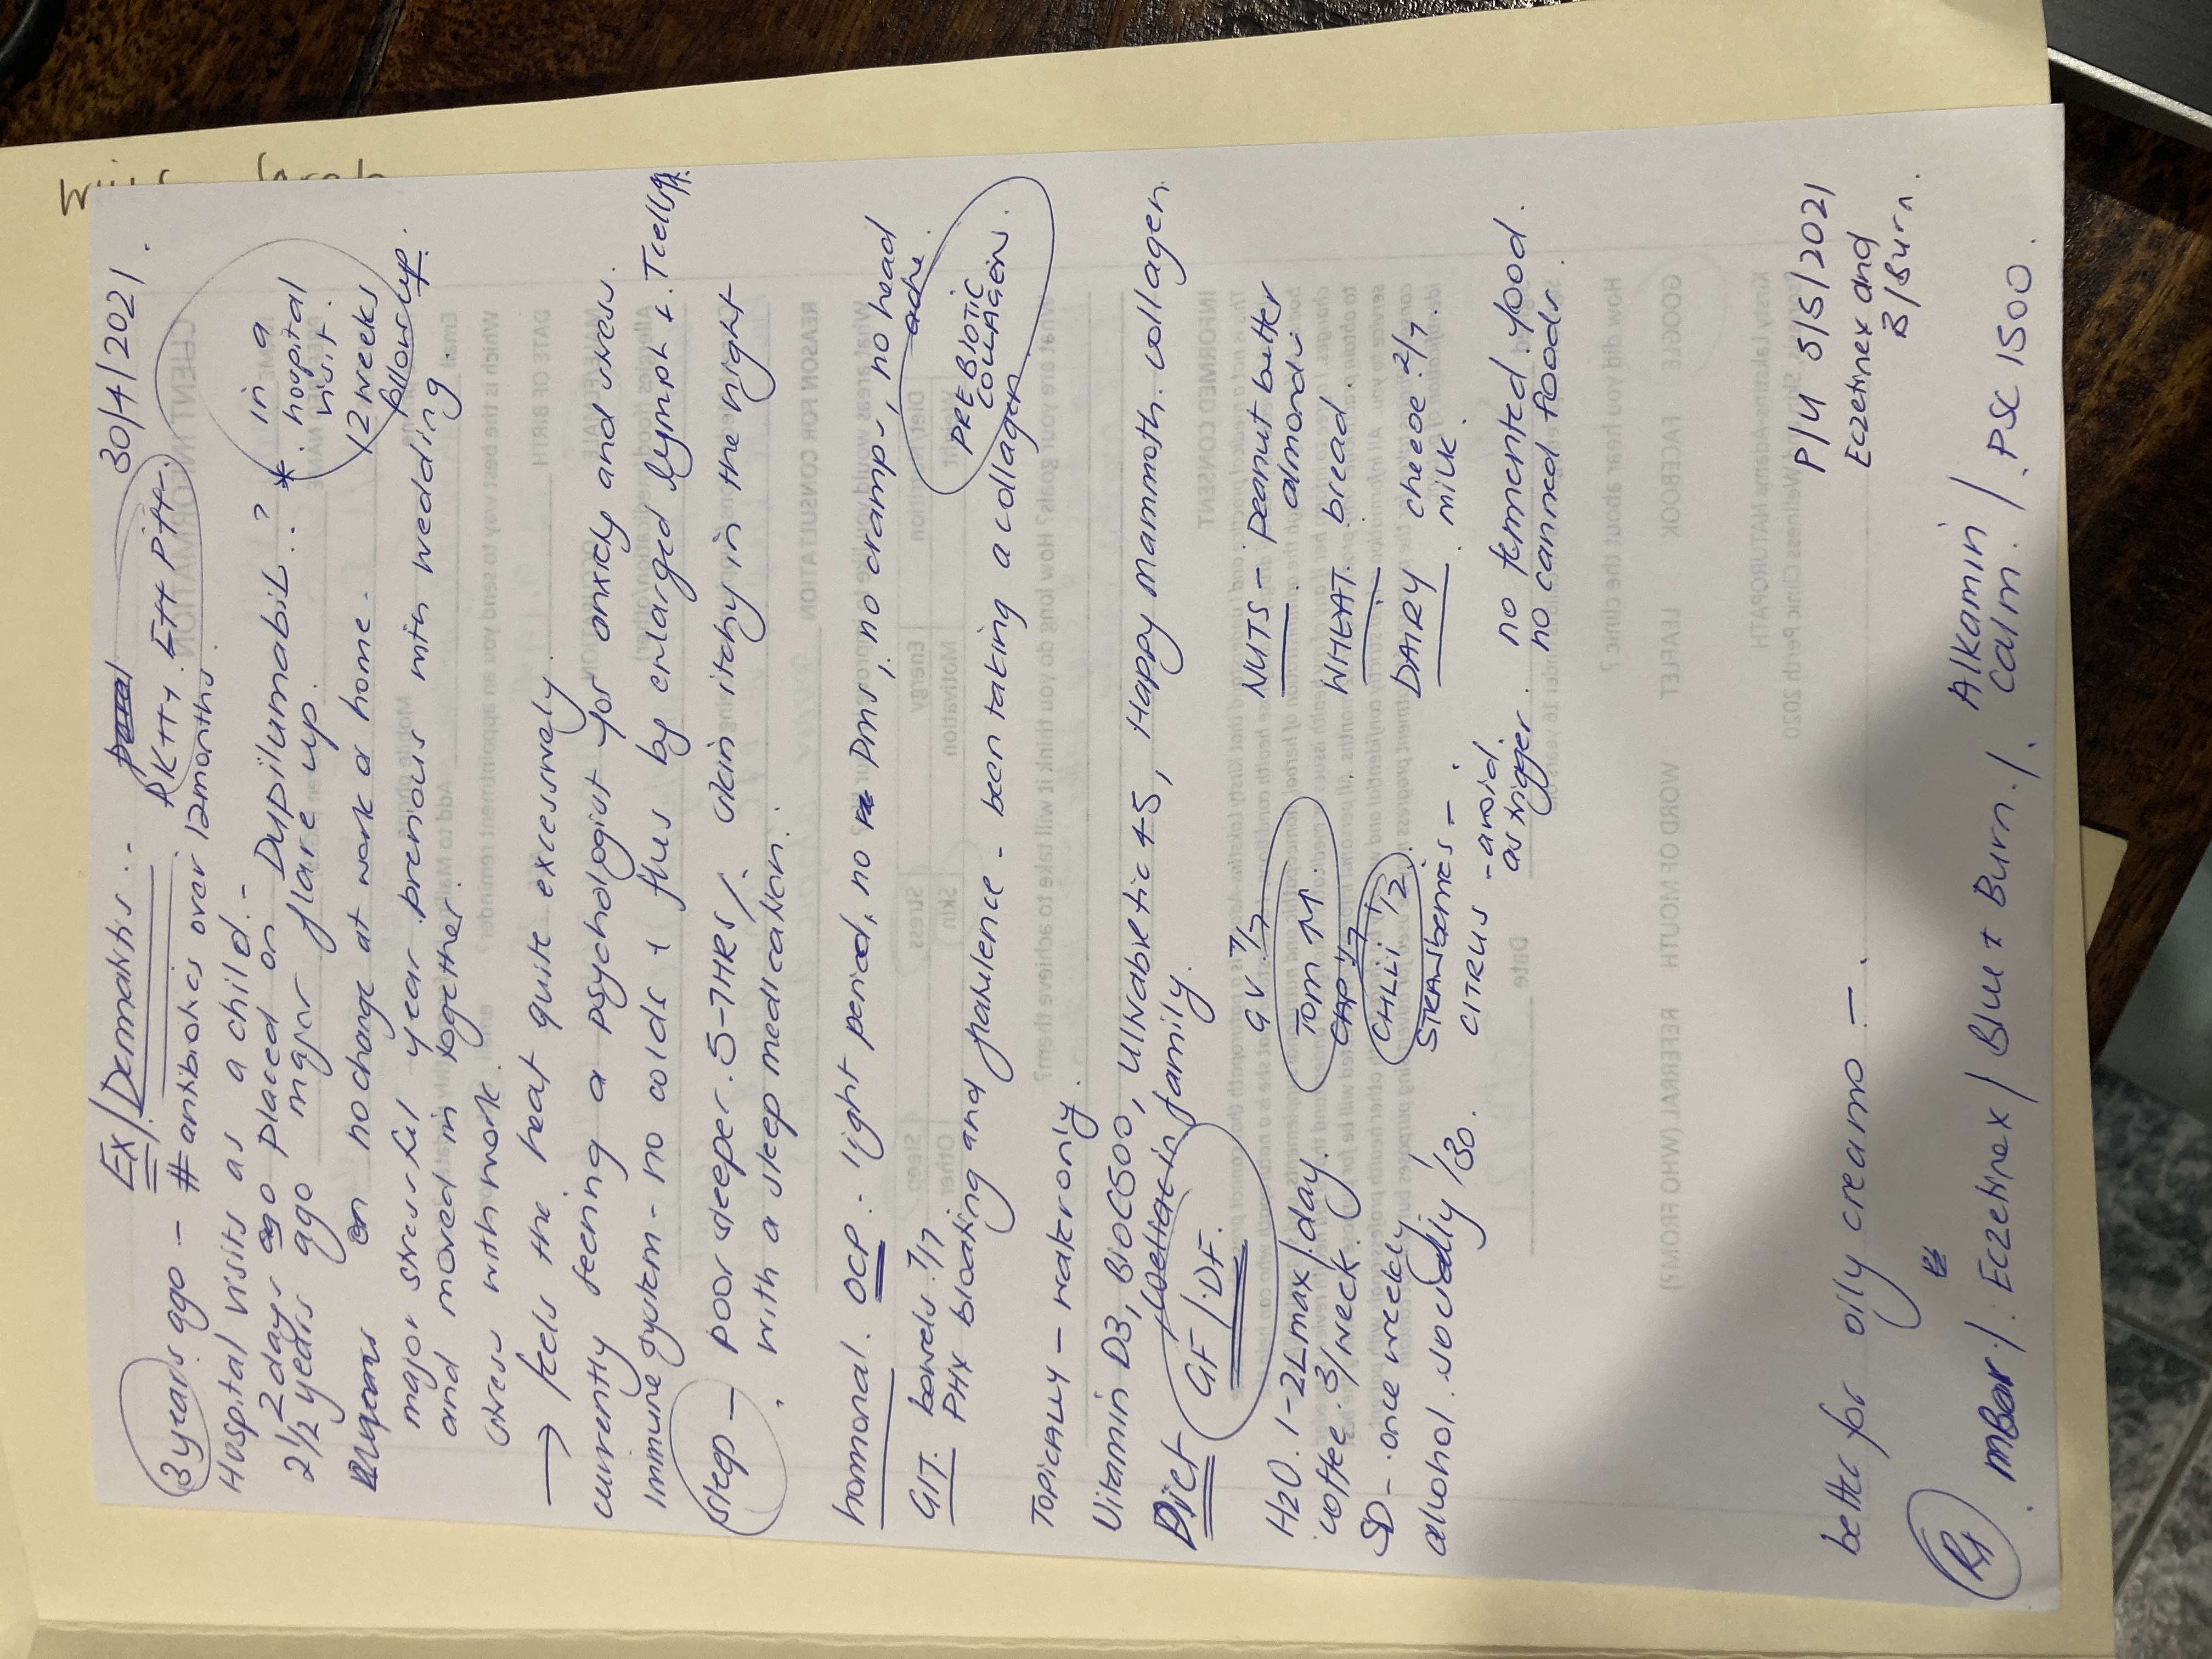 30/4/2021.
Ex/Dermatitis.
RK++. E++ P++.
3 years ago - # antibiotics over 12 months.
Hospital visits as a child. -
2 days ago placed on Dupilumabil..? * in a hospital visit.
2 1/2 years ago major flare up. 12 weeks followup.
no change at work a home.
major stressful year previous with wedding
and moved in together.
stress with work.
→ feels the heat quite excessively.
currently seeing a psychologist for anxiety and stress.
immune system - no colds + flus by enlarged lymph + Tcells
sleep - poor sleeper. 5-7HRS/. skin itchy in the night
with a sleep medication.
hormonal. OCP. light period, no PMS, no cramp, no head ache.
GIT. bowels. 7/7
PHx bloating and flatulence - been taking a collagen.
PREBIOTIC COLLAGEN
TOPICALLY - water only.
Vitamin D3, BIOC500, UltraBiotic 45, Happy Mammoth. collagen.
Diet family.
GF/.DF.
H2O. 1-2L max/day.
coffee. 3/week.
SD - once weekly
alcohol. socially 1/30.
GV 7/7
TOM 1M.
CAP 1/7
CHILLI 1/2.
Strawberries -
CITRUS - avoid. as trigger.
NUTS - peanut butter almonds.
WHEAT. bread
DAIRY cheese. 2/7. milk.
no fermented food.
no canned foods.
P/U 5/5/2021
Eczetinex and
B/Burn.
better for oily creams -.
Rx
mBar/. Eczetinex/ Blue + Burn./. Alkamin Calm. /. PSC 1500.